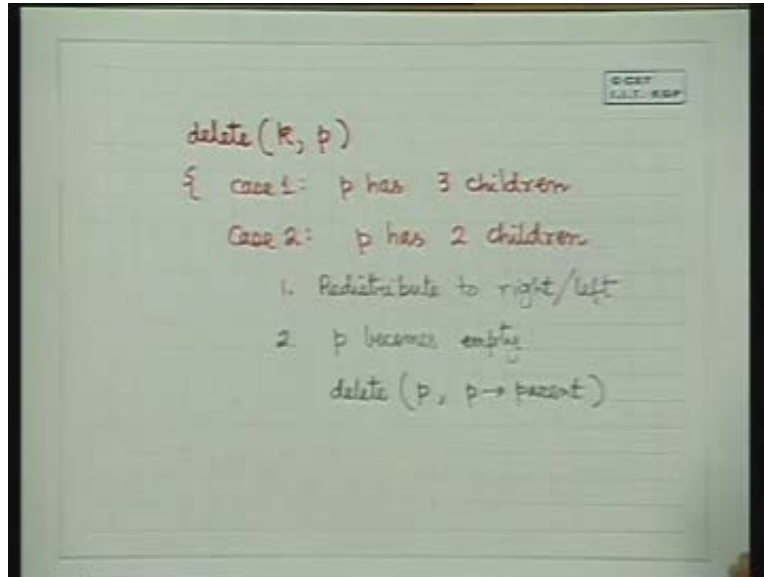 © CET
I.I.T. KGP
delete (k, p)
{ case 1: p has 3 children
Case 2: p has 2 children
1. Redistribute to right/left
2 p becomes empty
delete (p, p→ parent)